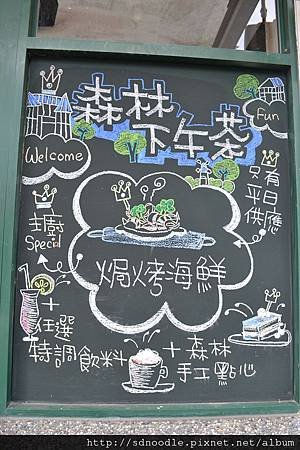 森林
下午茶
Fun
Welcome
只有
平日
供應
主廚
Special
焗烤海鮮
+
任選
特調飲料
+森林
手工點心
http://sdnoodle.pixnet.net/album